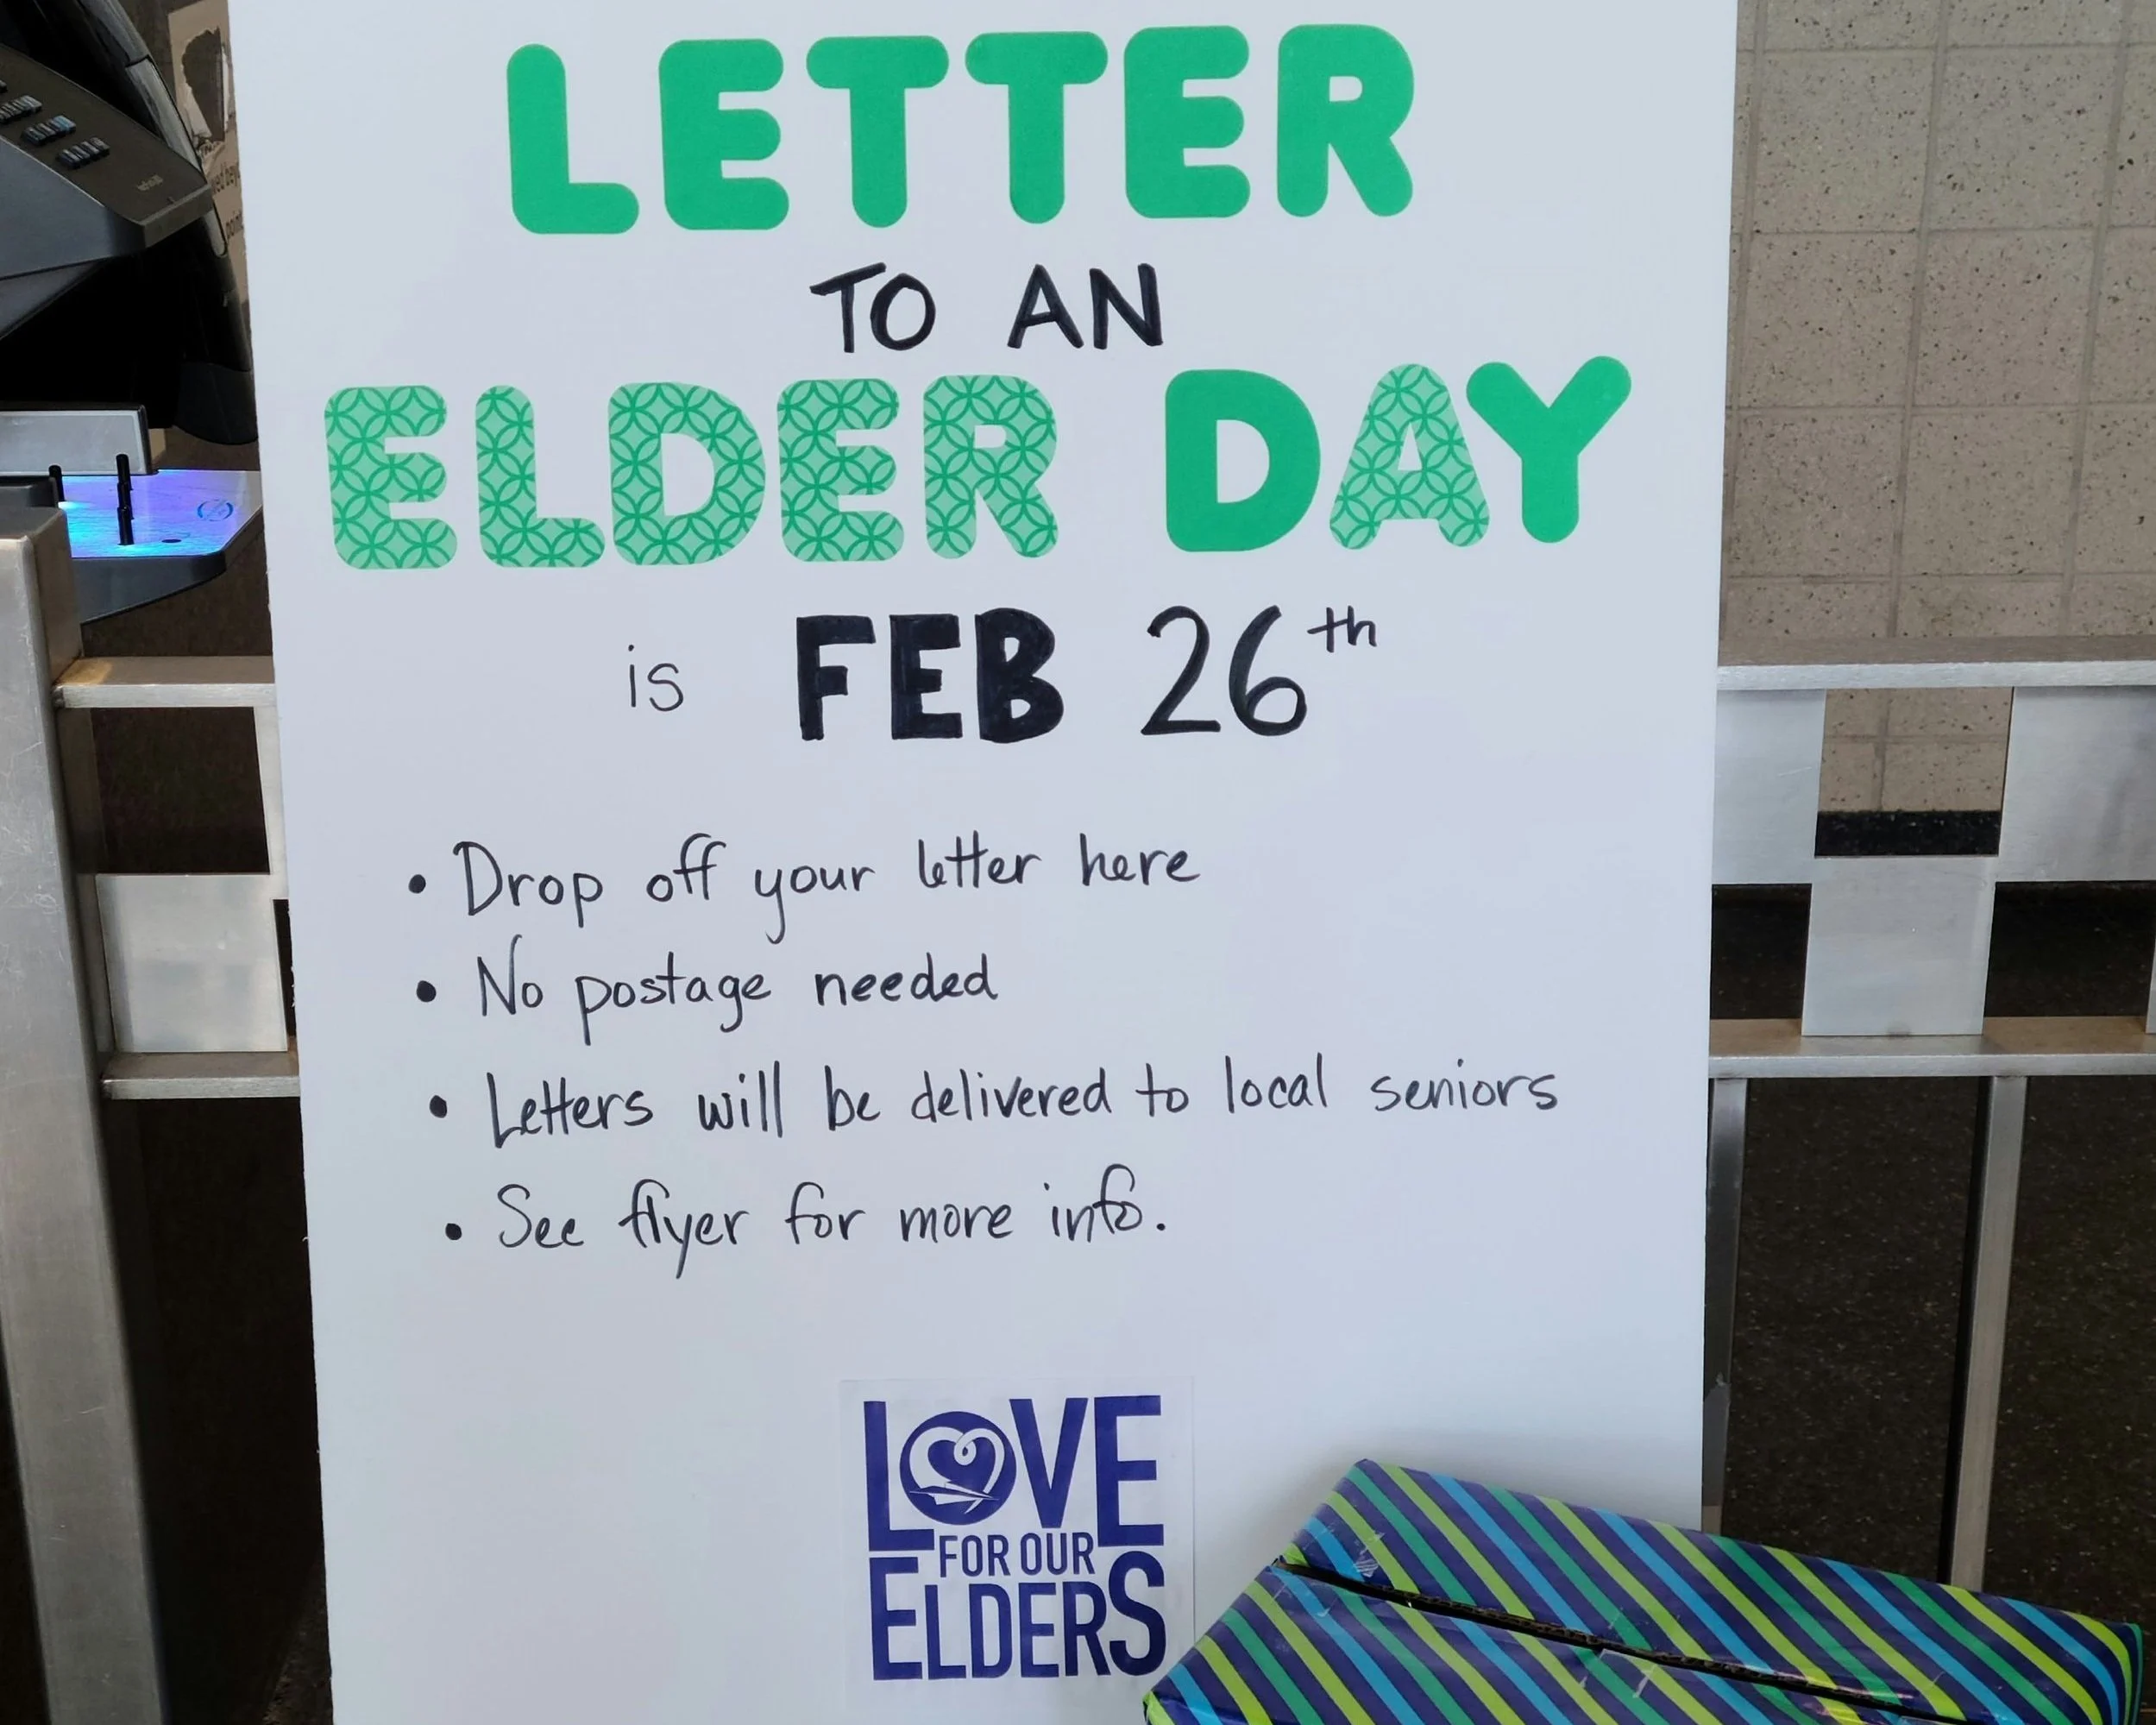 LETTER
TO AN
ELDER DAY
is FEB 26th
• Drop off your letter here
• No postage needed
• Letters will be delivered to local seniors
• See flyer for more info.
LOVE
FOR OUR
ELDERS